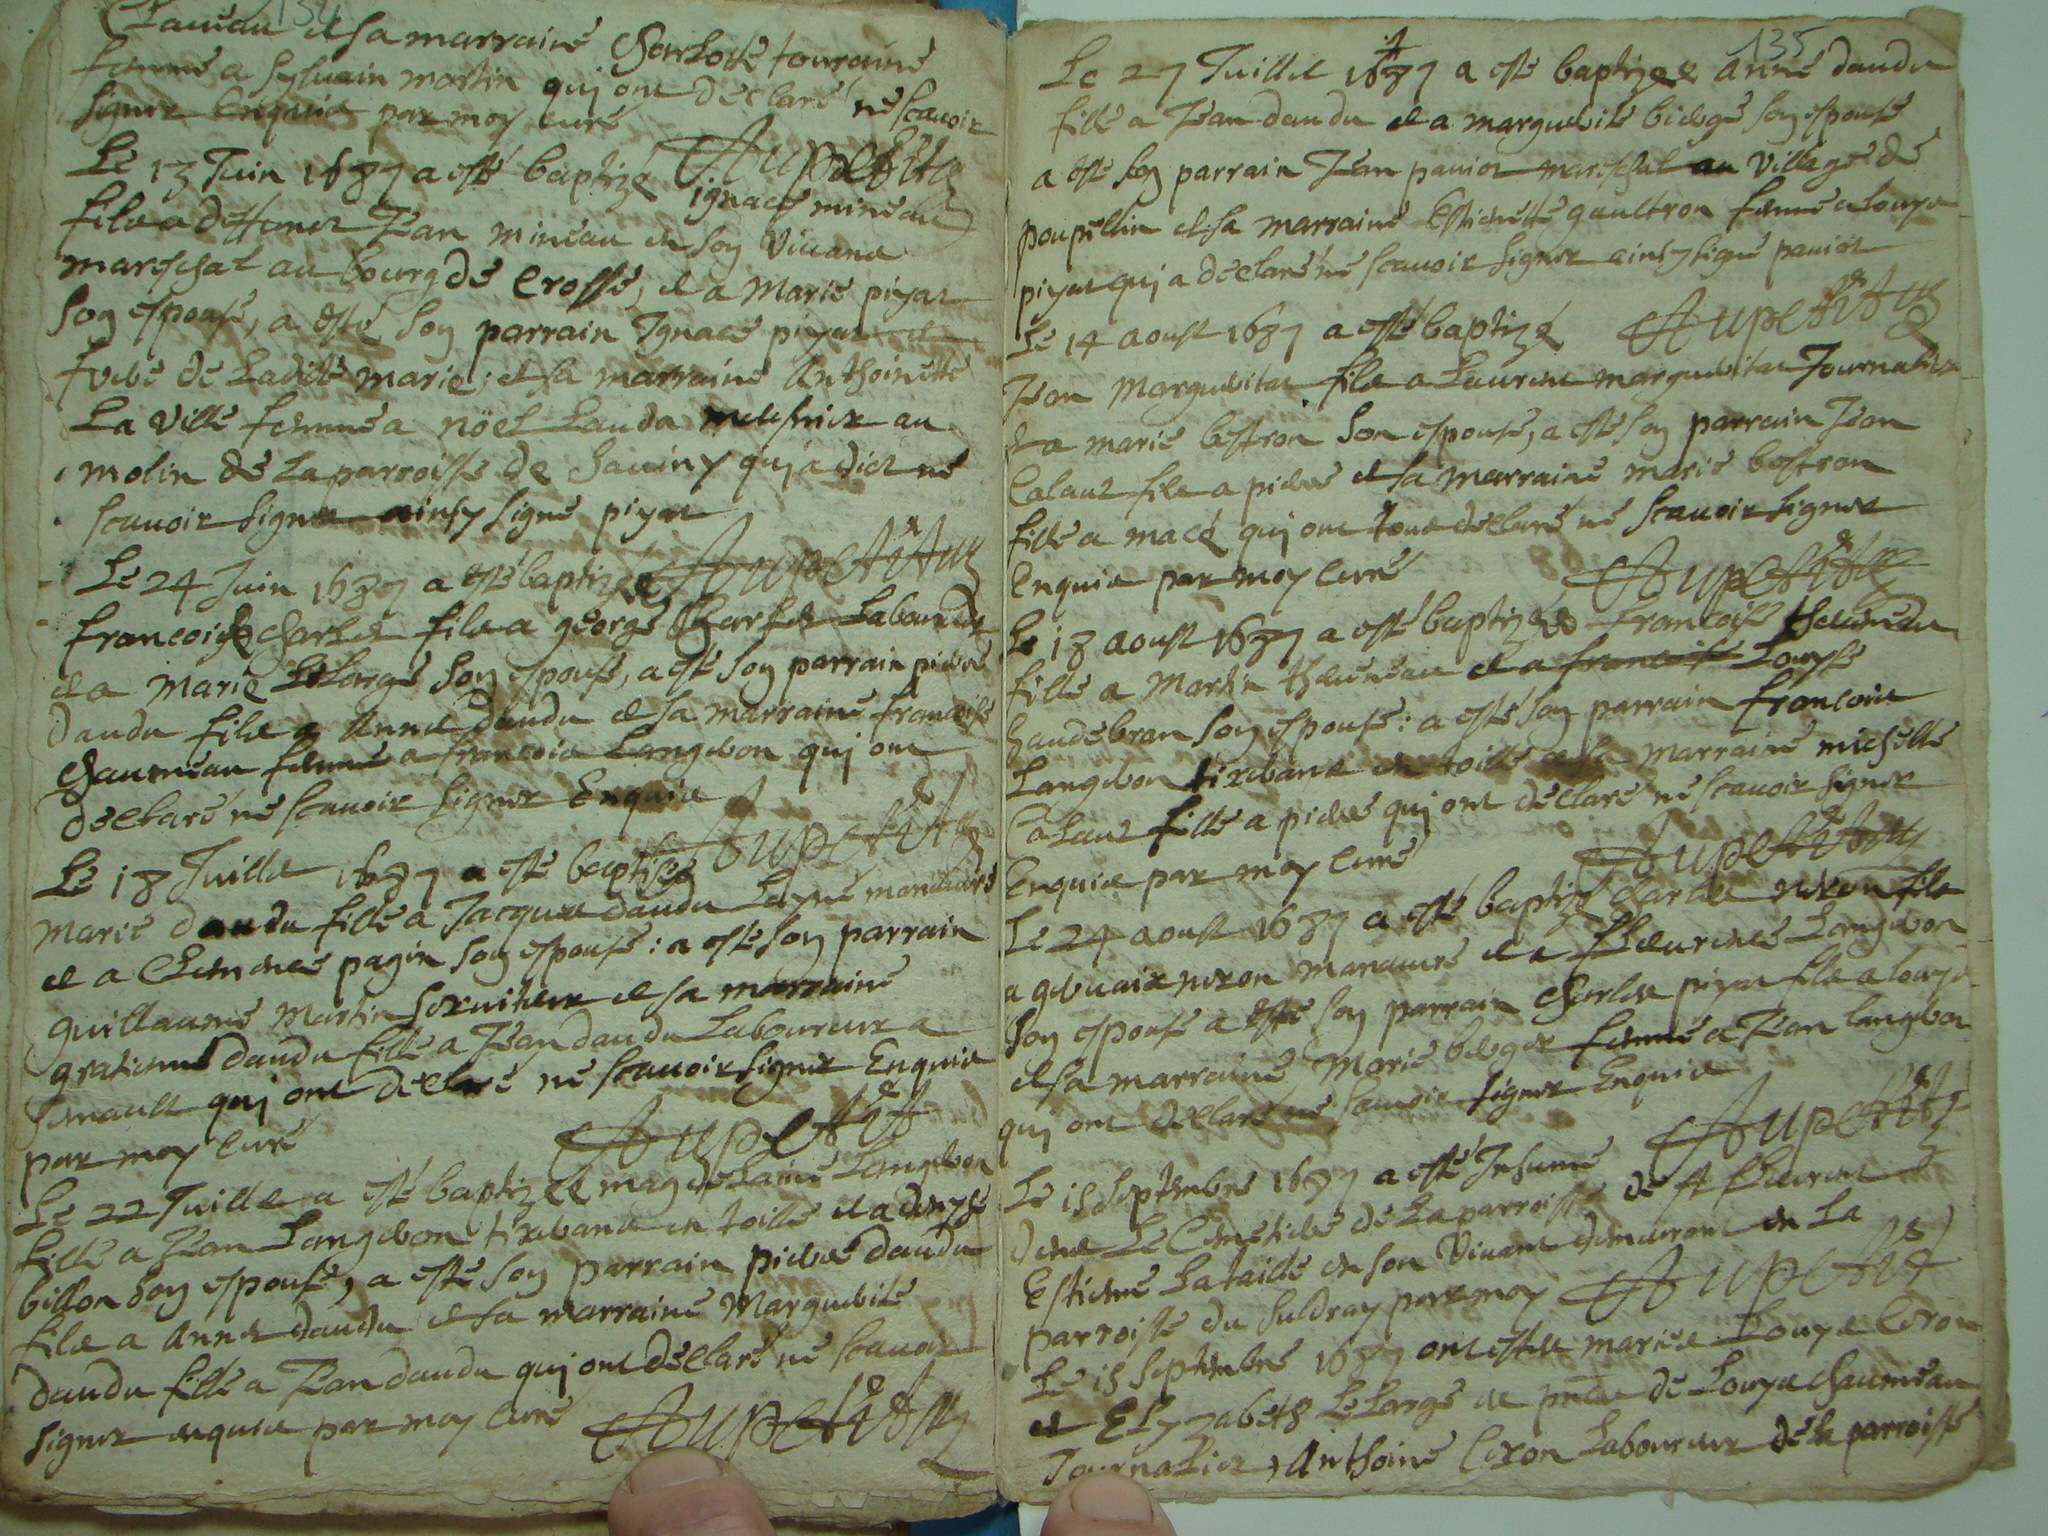 134
et sa marraine Charlotte touraine
femme a Sylvain martin qui ont declaré ne scavoir
signer Enquis par moy curé
Le 13 Juin 1687 a esté baptizé ignace mineau
fils a deffunct Jean mineau en son vivant
mareschal au bourg de Crosse, et a Marie pijat
son espouse, a esté son parrain Ignace pijat
frere de Ladite marie; et sa marraine Anthoinette
La ville femme a nöel Landa meusnier au
molin de La parroisse de Saviny qui a dict ne
scavoir signer ainsy signé pijat
Le 24 Juin 1687 a esté baptizé
francois Charles fils a george Charles Laboureur
et a Marie LeLarge son espouse, a esté son parrain pierre
daudu fils a Anne daudu et sa marraine francoise
chaumeau femme a francois Langeron qui ont
declaré ne scavoir signer Enquis
Le 18 Juillet 1687 a esté baptisée
Marie daudu fille a Jacques daudu Layné manœuvre
et a pagin son espouse: a esté son parrain
guillaume Martin serviteur et sa marraine
gratienne daudu fille a Jean daudu Laboureur a
qui ont declaré ne scavoir signer Enquis
par moy curé
Le 22 Juillet a esté baptizée magdelaine Langeron
fille a Jean Langeron tixerand en toille et a denyse
billon son espouse, a esté son parrain pierre daudu
fils a Anne daudu et sa marraine Marguerite
daudu fille a Jean daudu qui ont declaré ne scavoir
signer enquis par moy curé
135
Le 27 Juillet 1687 a esté baptizée Anne daudu
fille a Jean daudu et a marguerite bierge son espouse
a esté son parrain Jean paviot mareschal au village de
poupellin et sa marraine Estiennette gaultron femme a Louys
pijat qui a declaré ne scavoir signer ainsy signé paviot
Le 14 aoust 1687 a esté baptizé
Jean Margueritat fils a Laurent margueritat Journalier
et a marie bestron son espouse, a esté son parrain Jean
Calaut fils a pierre et sa marraine marie bestron
fille a macé qui ont tous declaré ne scavoir signer
Enquis par moy curé
Le 18 aoust 1687 a esté baptizée francoise
fille a Martin et a francoise Louyse
haudebran son espouse: a esté son parrain francois
Langeron tixerand en toille et sa marraine michelle
Calaut fille a pierre qui ont declaré ne scavoir signer
Enquis par moy curé
Le 24 aoust 1687 a esté baptizé Charles nizon fils
a gervais nizon manœuvre et a fleurence Langeron
son espouse a esté son parrain Charles pijat fils a Louys
et sa marraine Marie berger femme a Jean langeron
qui ont declaré ne scavoir signer Enquis
Le 15 septembre 1687 a esté Inhumé
dans Le Cimetiere de La parroisse de st fleurent
Estienne Lataille en son vivant demeurant en La
parroisse du suldray par moy
Le 15 septembre 1687 ont estes mariés Louys Ciron
et Elyzabeth LeLarge en pnce de Louys chaumeau
Journalier, Anthoine Ciron Laboureur de la parroisse